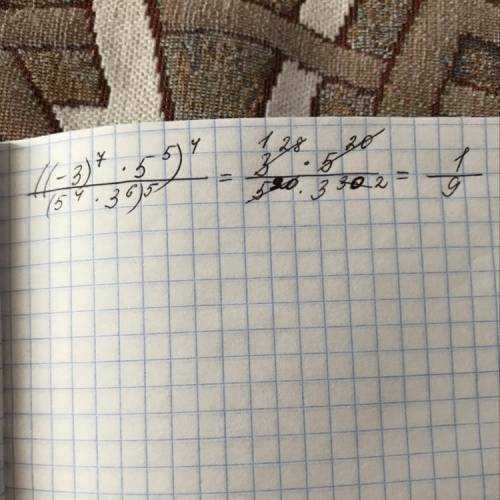 ((-3)^7 · 5^5)^4 / (5^4 · 3^6)^5 = 1 3^28 · 5^20 / 5^20 · 3^30 2 = 1/9